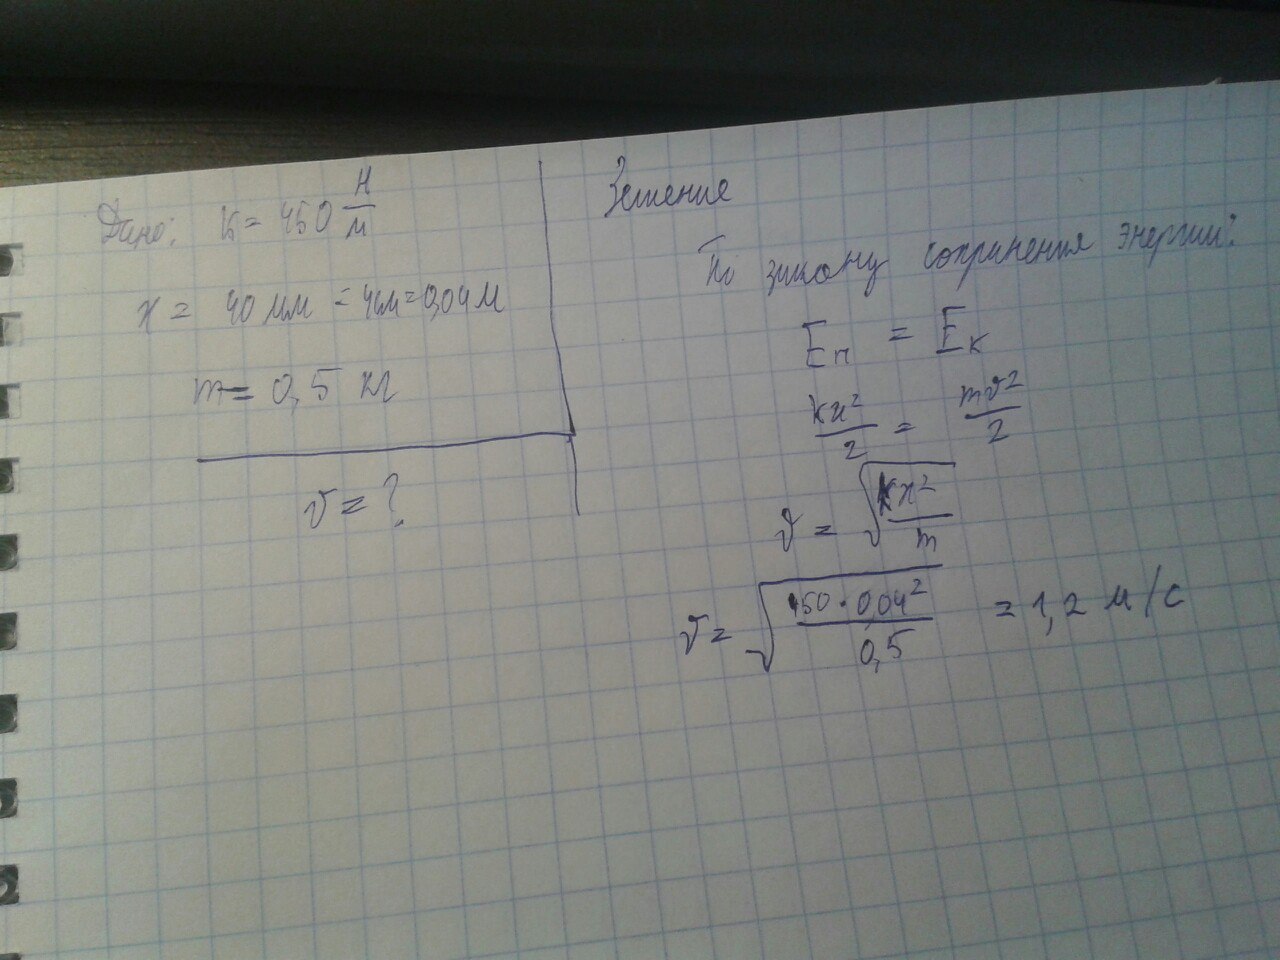 Дано: k = 450 Н/м
x = 40 мм = 4см = 0,04 м
m = 0,5 кг
v = ?
Решение
По закону сохранения энергии:
Eп = Eк
kx²/2 = mv²/2
v = √(kx²/m)
v = √(450·0,04²/0,5) = 1,2 м/с